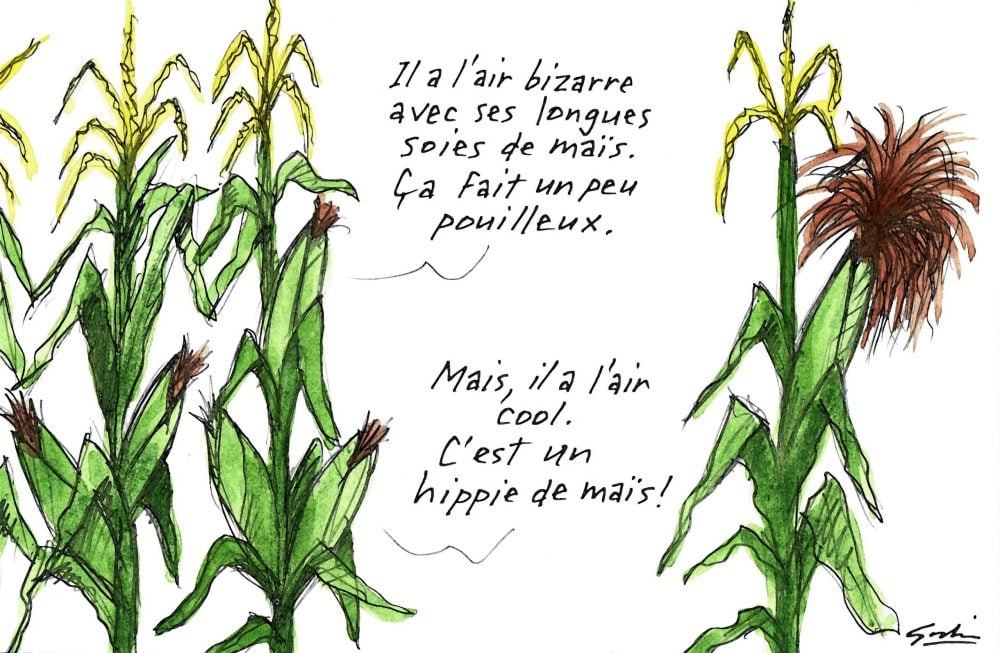 Il a l'air bizarre
avec ses longues
soies de maïs.
Ça fait un peu
pouilleux.
Mais, il a l'air
cool.
C'est un
hippie de maïs!